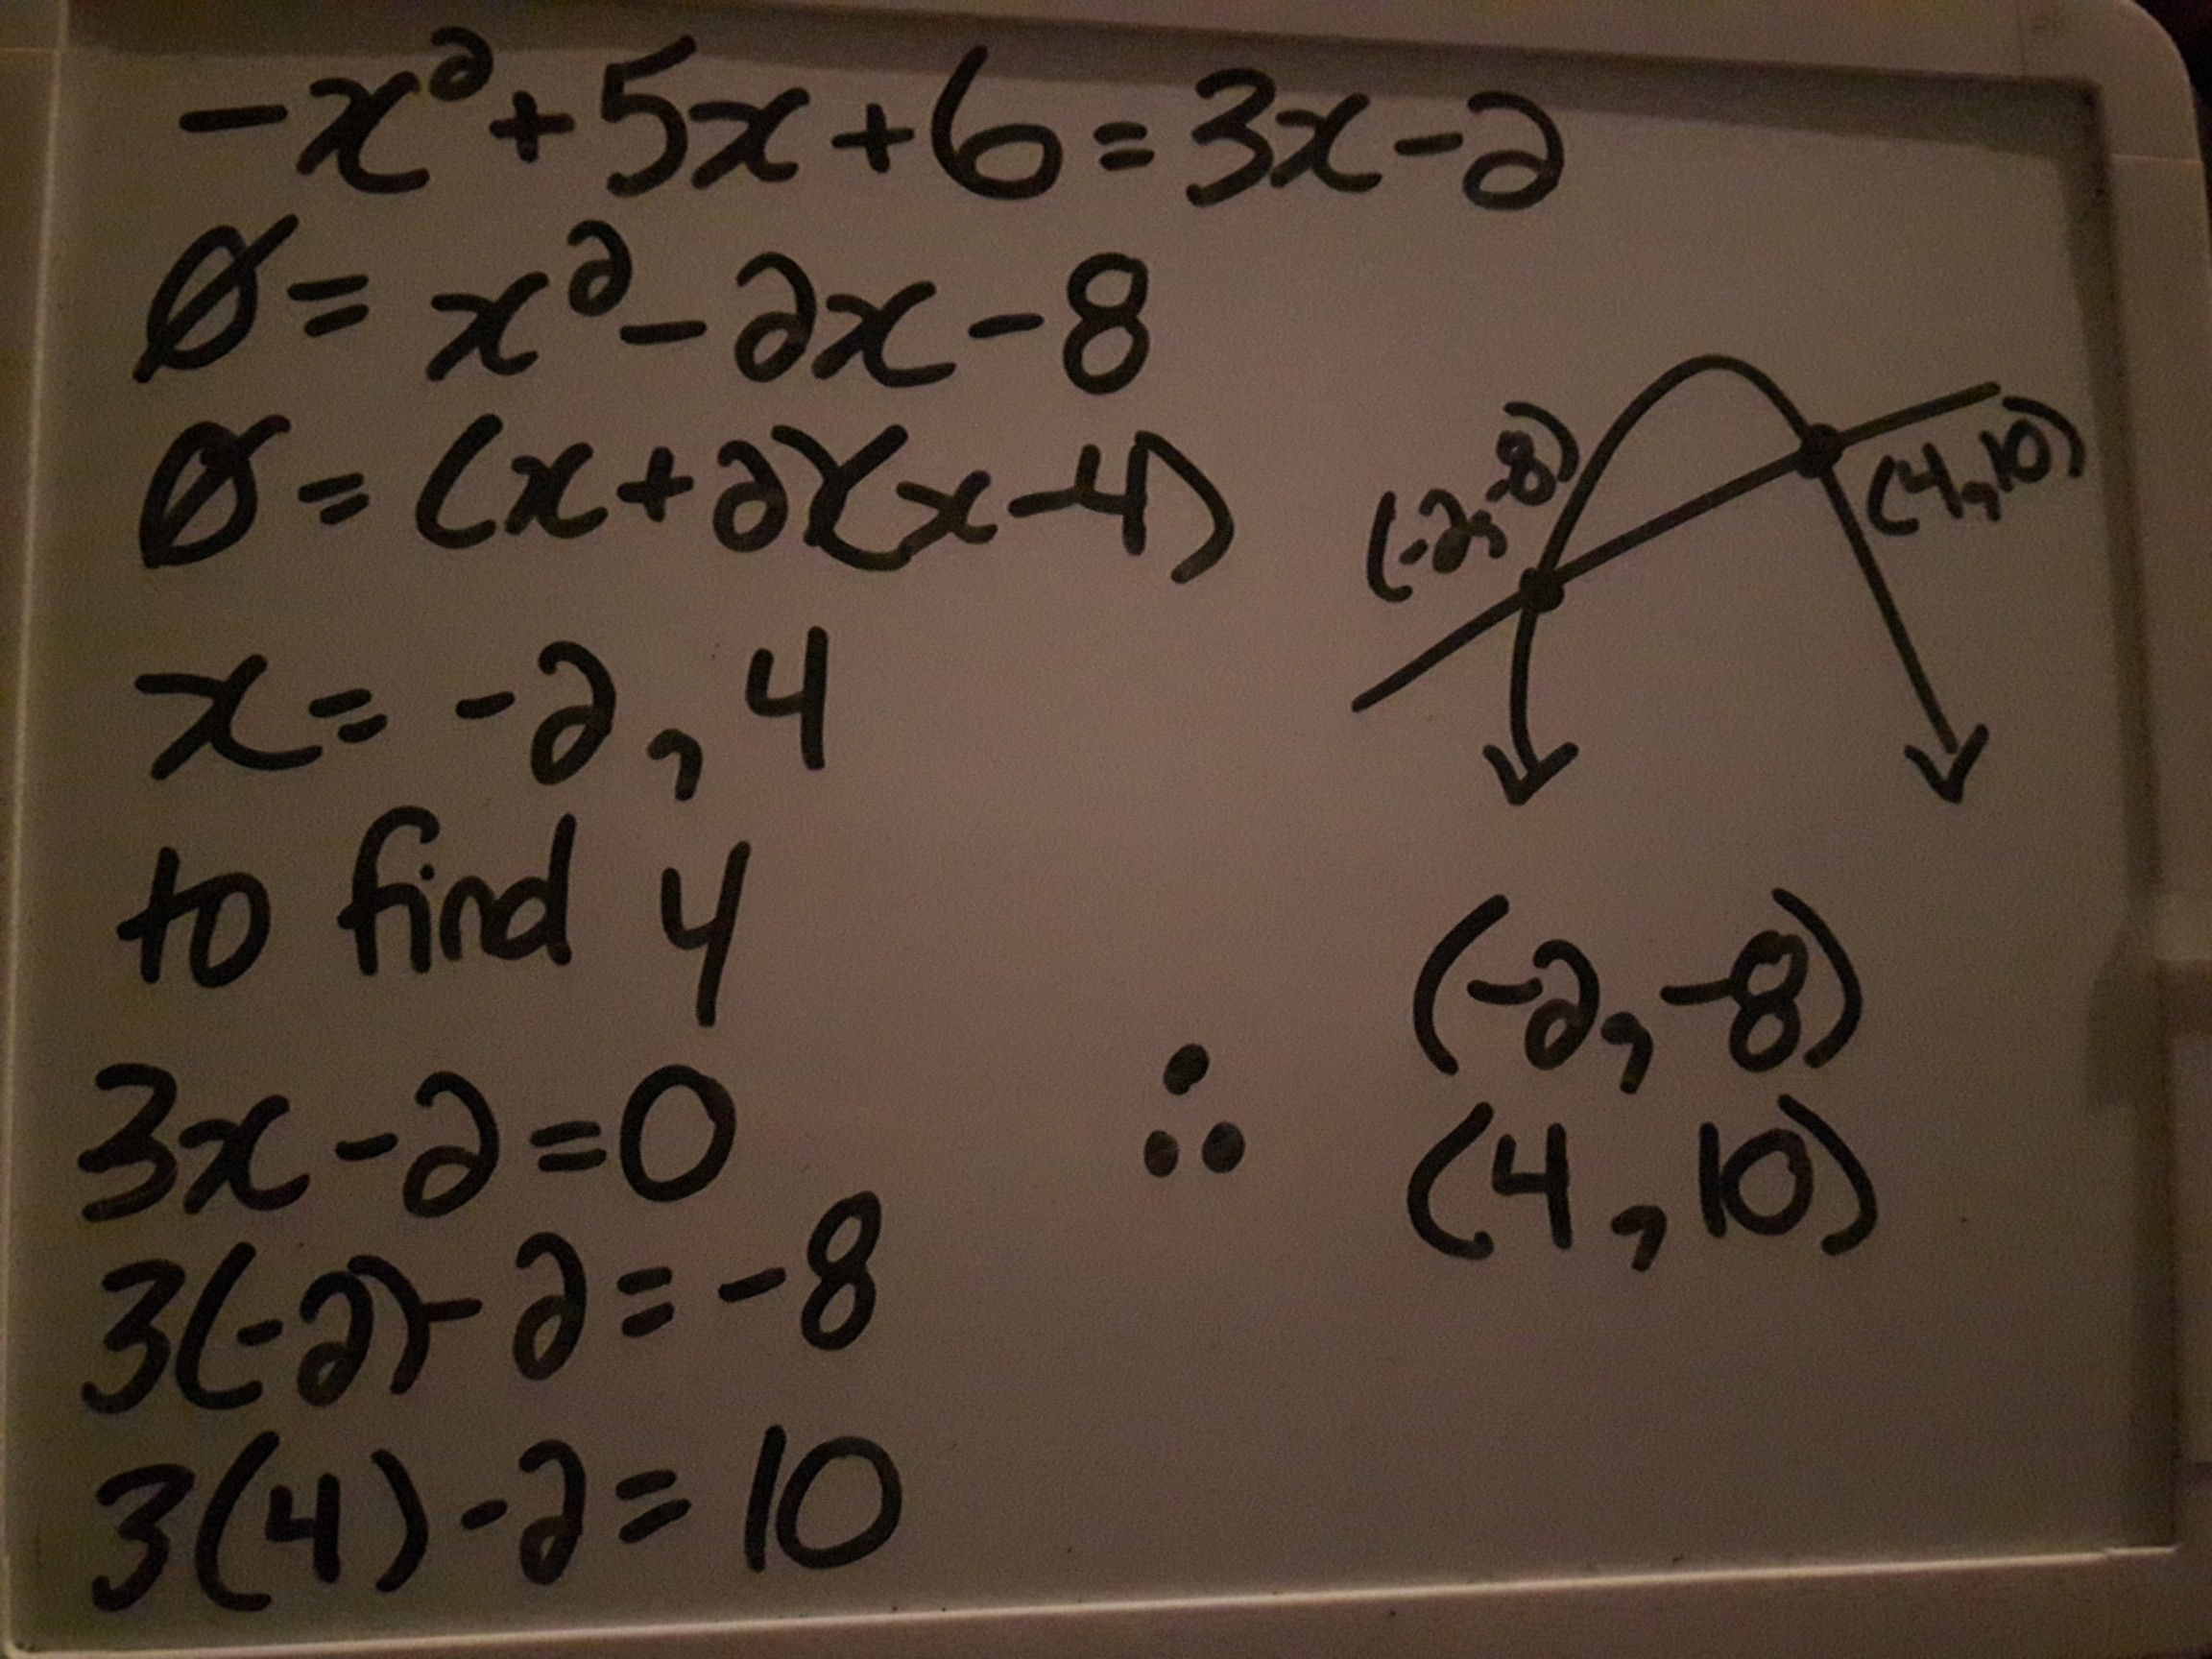 -x²+5x+6=3x-2
0=x²-2x-8
0=(x+2)(x-4)
x=-2,4
to find y
3x-2=0
3(-2)-2=-8
3(4)-2=10
(-2,-8)
(4,10)
∴ (-2,-8)
(4,10)